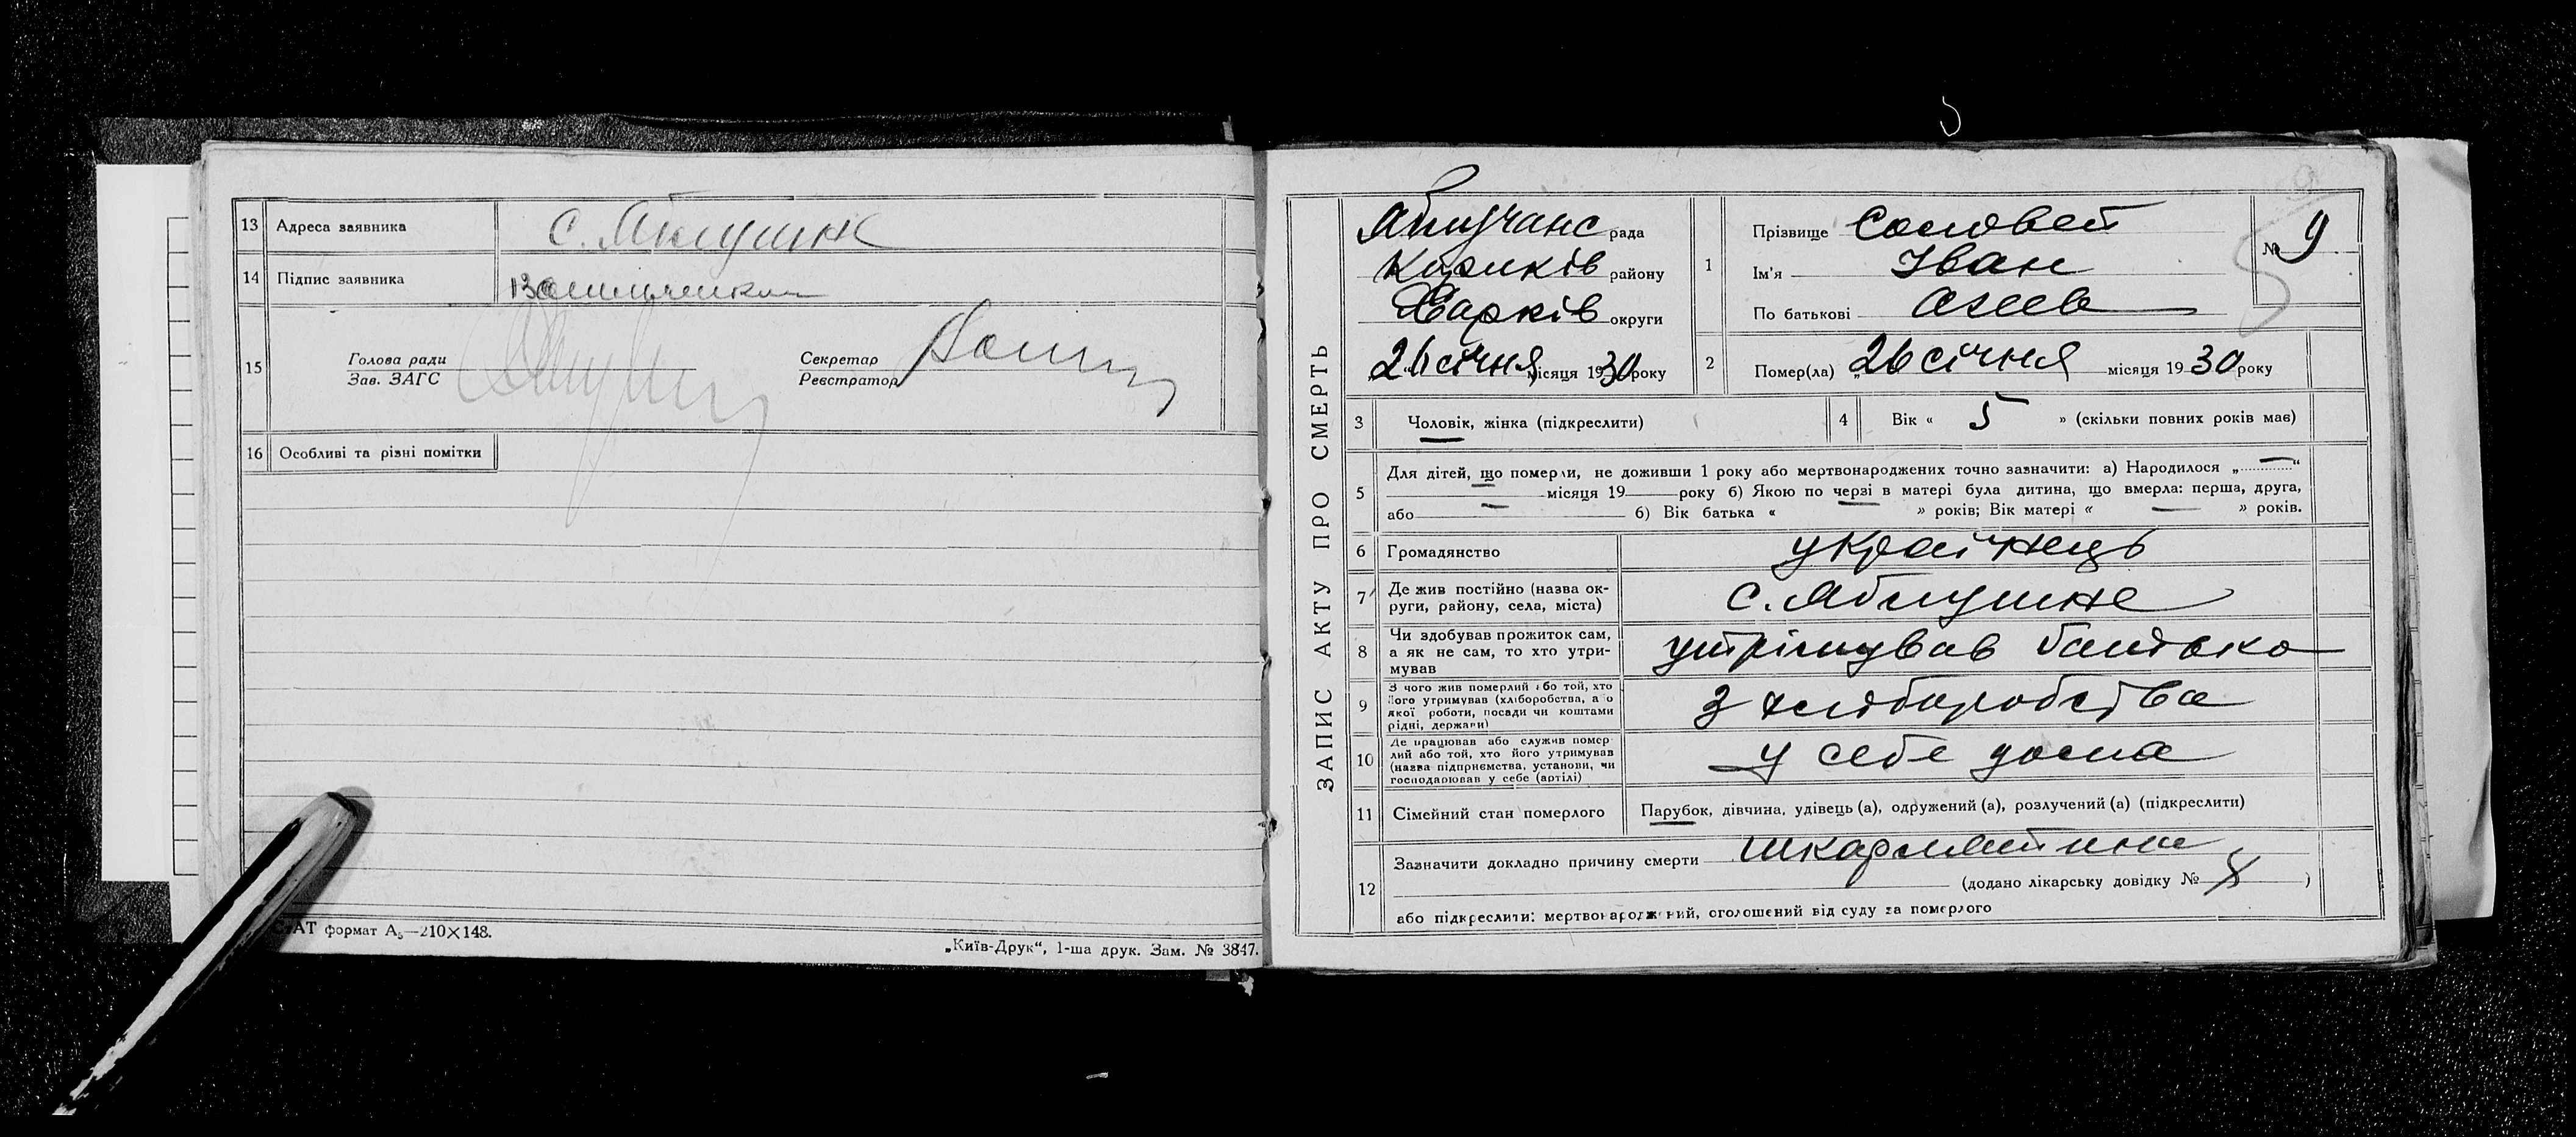 13 Адреса заявника с. Яблушне
14 Підпис заявника
15 Голова ради
Зав. ЗАГС
Секретар
Реєстратор
16 Особливі та різні помітки
СтАТ формат А5—210×148.
„Київ-Друк“, 1-ша друк. Зам. № 3847.
ЗАПИС АКТУ ПРО СМЕРТЬ
Яблучанс рада
району
Харків округи
„26“ січня місяця 1930 року
1 Прізвище Соловей
Ім'я Іван
По батькові
№ 9
2 Помер(ла) „26 січня місяця 1930 року
3 Чоловік, жінка (підкреслити)
4 Вік « 5 » (скільки повних років має)
5 Для дітей, що померли, не доживши 1 року або мертвонароджених точно зазначити: а) Народилося „ — “
місяця 19 року б) Якою по черзі в матері була дитина, що вмерла: перша, друга,
або б) Вік батька « » років; Вік матері « — » років.
6 Громадянство українець
7 Де жив постійно (назва ок-
руги, району, села, міста) с. Яблушне
8 Чи здобував прожиток сам,
а як не сам, то хто утри-
мував утрімував батько
9 З чого жив померлий або той, хто
його утримував (хліборобства, або
якої роботи, посади чи коштами
рідні, держави) з хліборобства
10 Де працював або служив помер
лий або той, хто його утримував
(назва підприємства, установи, чи
господарював у себе (артілі) у себе дома
11 Сімейний стан померлого Парубок, дівчина, удівець (а), одружений (а), розлучений (а) (підкреслити)
12 Зазначити докладно причину смерти шкарлятина
(додано лікарську довідку № )
або підкреслити: мертвонароджений, оголошений від суду за померлого